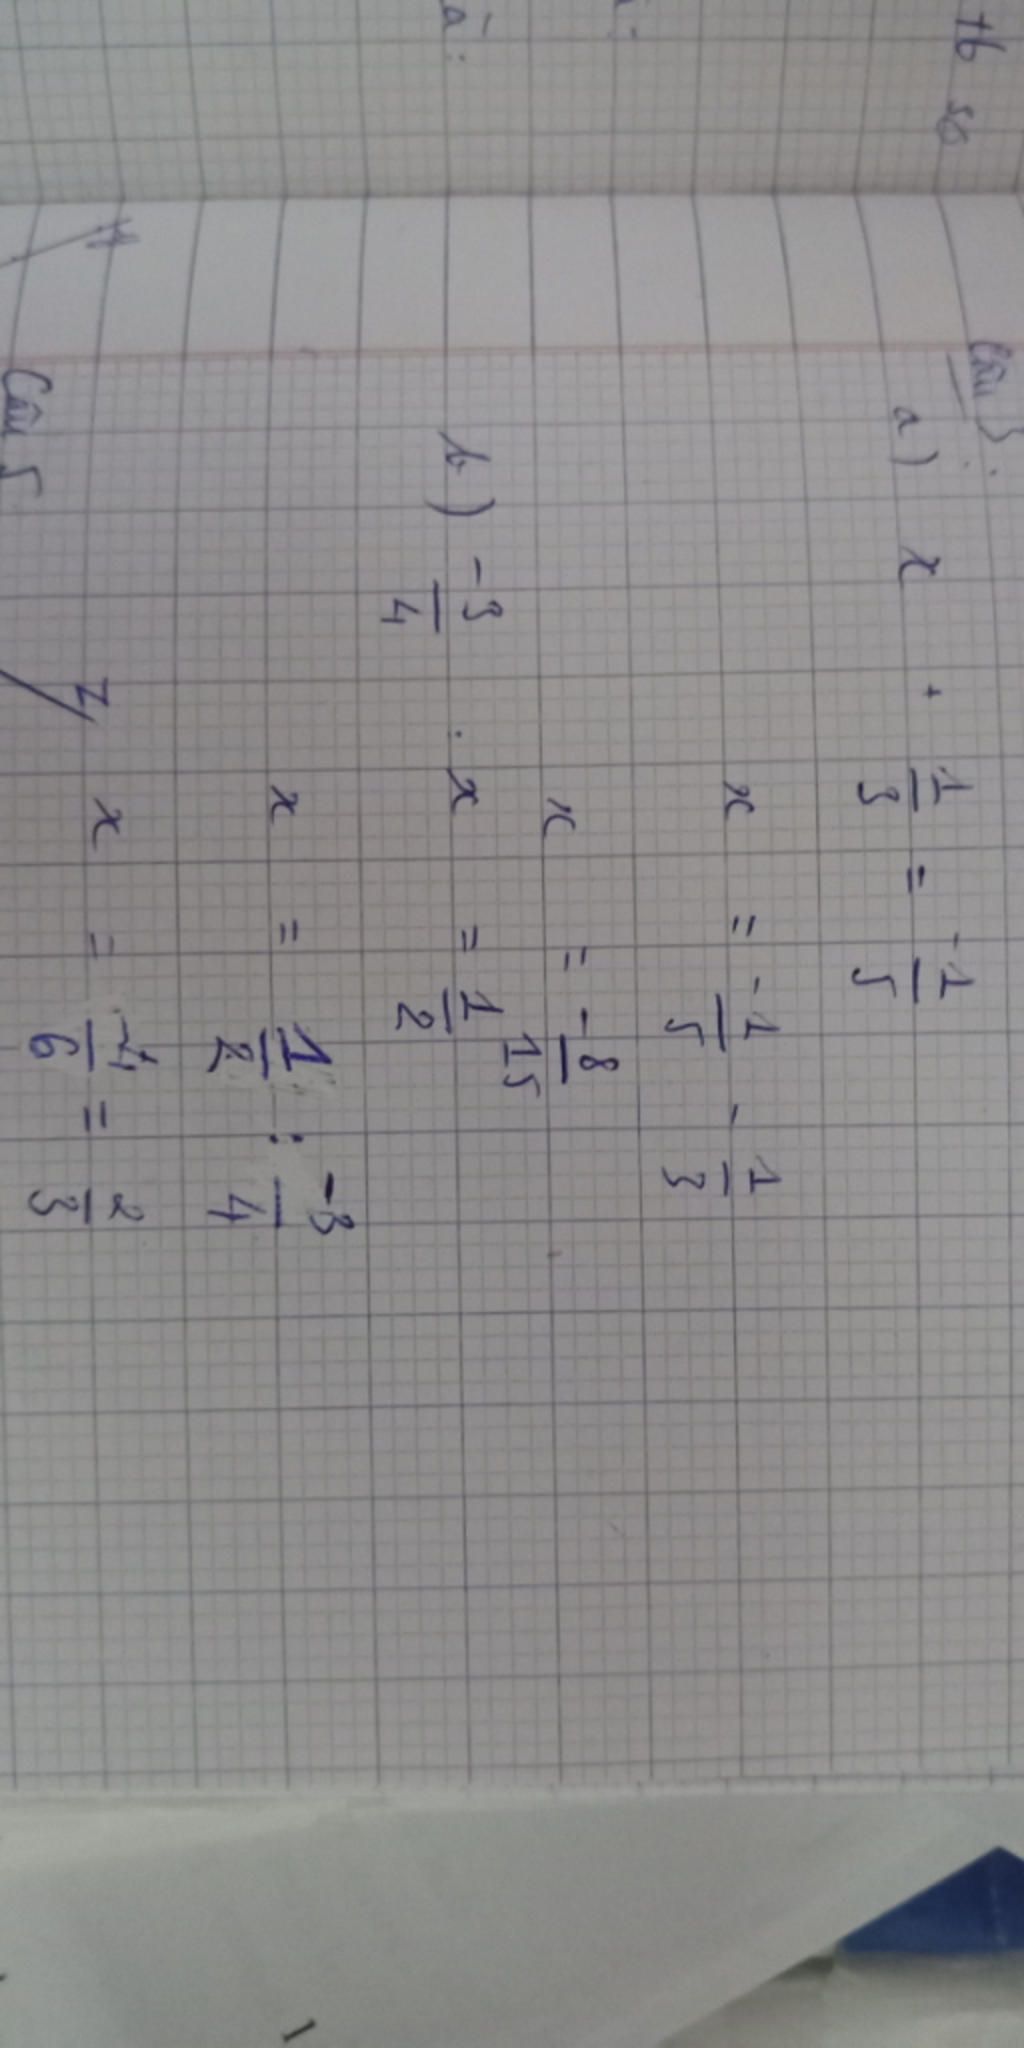 tb số
à:
Câu 3:
a) x + 1/3 = -1/5
x = -1/5 - 1/3
x = -8/15
b) -3/4 . x = 1/2
x = 1/2 : -3/4
x = -4/6 = 2/3
Câu 5